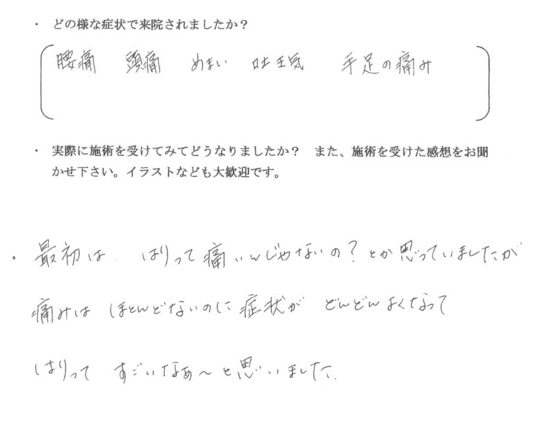 ・ どの様な症状で来院されましたか？
腰痛 頭痛 めまい 吐き気 手足の痛み
・ 実際に施術を受けてみてどうなりましたか？ また、施術を受けた感想をお聞
かせ下さい。イラストなども大歓迎です。
・ 最初は はりって痛いんじゃないの？とか思っていましたが
痛みは ほとんどないのに 症状が どんどんよくなって
はりって すごいなぁ〜と思いました。